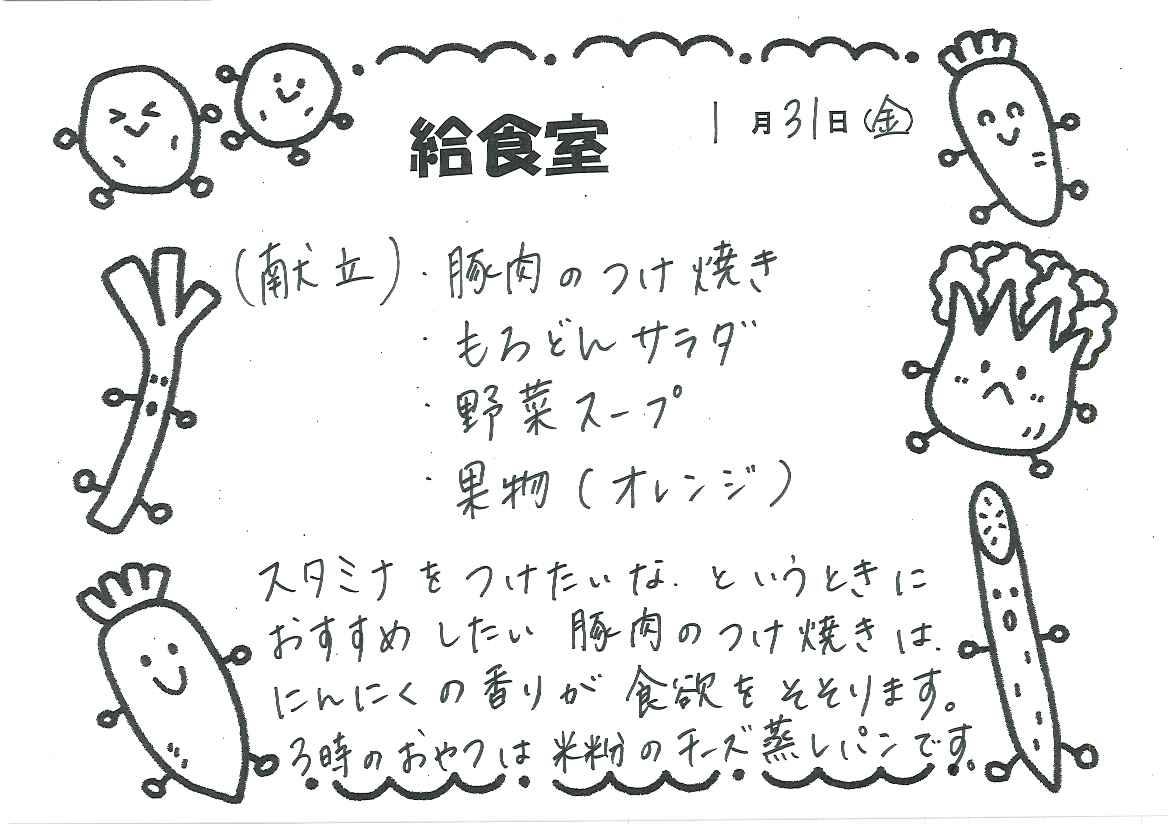 給食室
1月31日(金)
(献立)・豚肉のつけ焼き
・もろどんサラダ
・野菜スープ
・果物(オレンジ)
スタミナをつけたいな、というときに
おすすめしたい豚肉のつけ焼きは、
にんにくの香りが食欲をそそります。
3時のおやつは米粉のチーズ蒸しパンです。